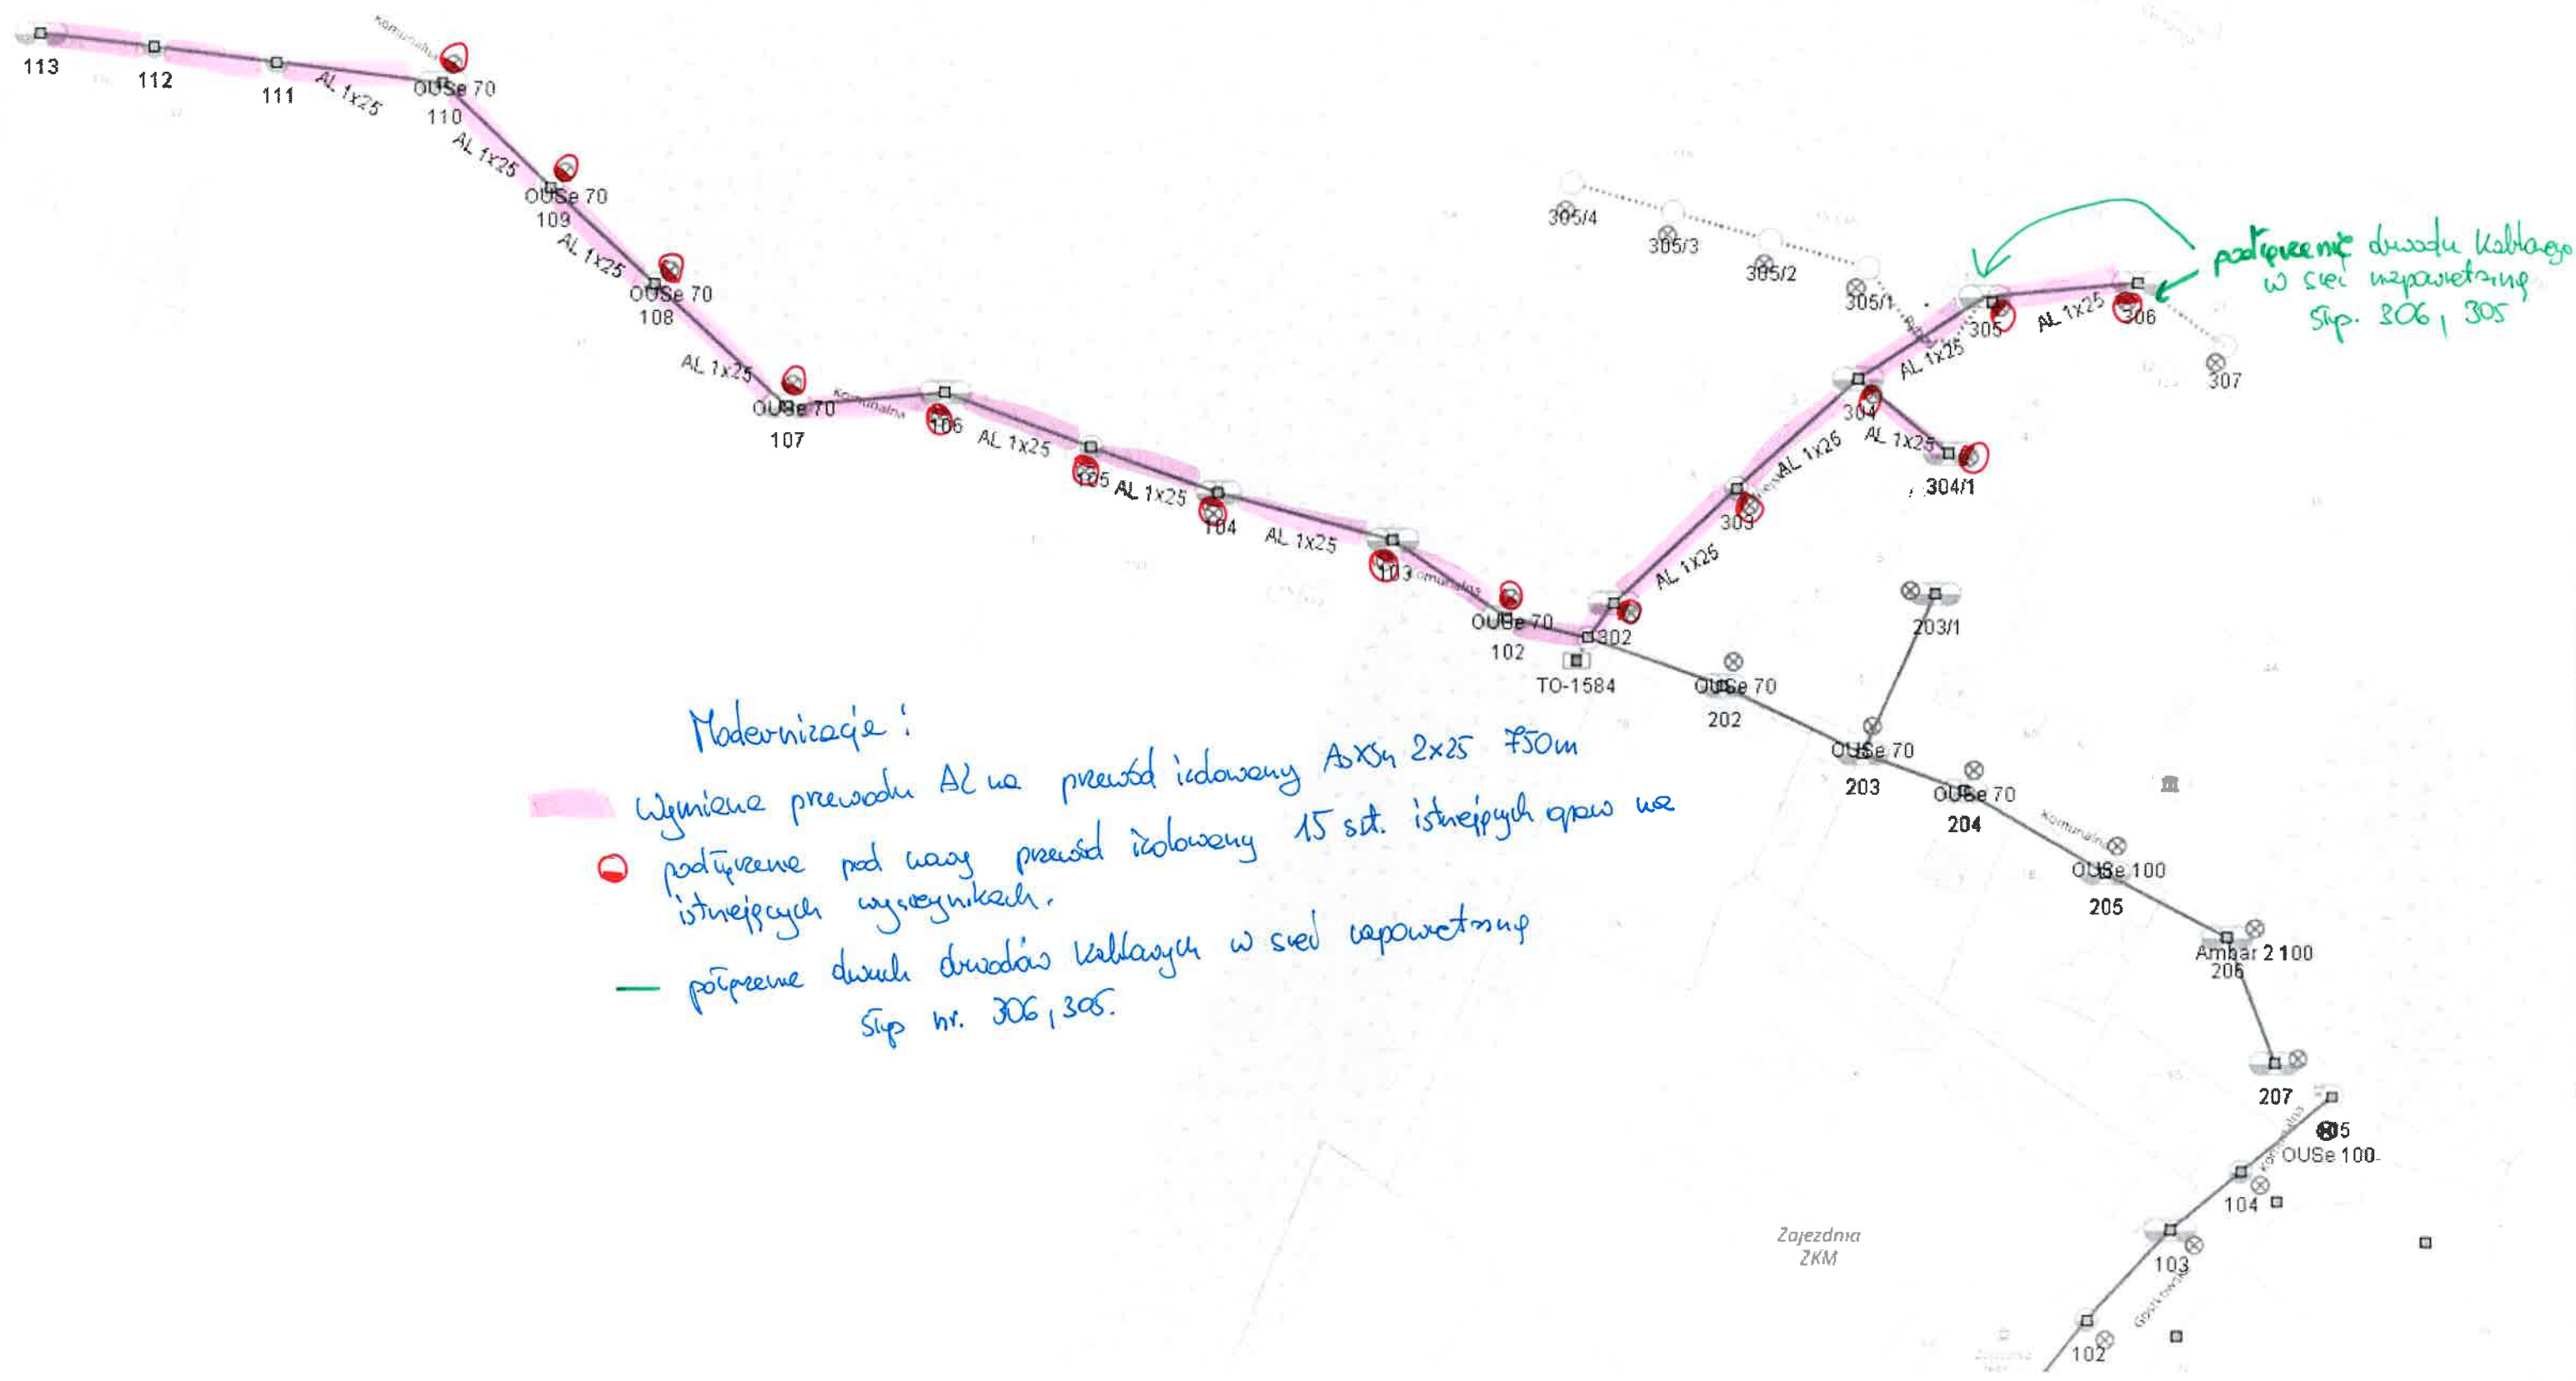 Komunalna
113
112
111
AL 1x25
OUSe 70
110
AL 1x25
OUSe 70
109
AL 1x25
OUSe 70
108
AL 1x25
OUSe 70
107
Komunalna
106
AL 1x25
105
AL 1x25
104
AL 1x25
103
Komunalna
OUSe 70
102
302
TO-1584
AL 1x25
303
AL 1x25
304
AL 1x25
304/1
AL 1x25
305
AL 1x25
306
307
305/4
305/3
305/2
305/1
podłączenie obwodu kablowego
w sieć napowietrzną
Słup. 306, 305
203/1
OUSe 70
202
OUSe 70
203
OUSe 70
204
Komunalna
OUSe 100
205
Ambar 2 100
206
207
Komunalna
105
OUSe 100
104
103
102
Zajezdnia
ZKM
Modernizacja:
Wymiana przewodu AL na przewód izolowany AsXSn 2x25 750m
podłączenie pod nowy przewód izolowany 15 szt. istniejących opraw na
istniejących wysięgnikach.
połączenie dwuch obwodów kablowych w sieć napowietrzną
Słup nr. 306, 305.